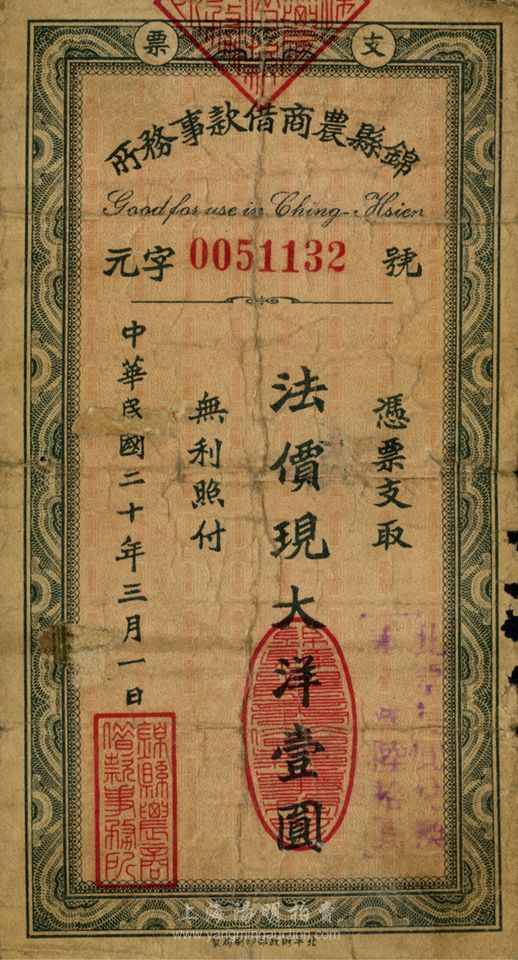 支票
錦縣農商借款事務所
Good for use in Ching-Hsien
元字 0051132 號
憑票支取
法價現大洋壹圓
無利照付
中華民國二十年三月一日
錦縣農商
借款事務所
北平財政部印刷局製
上海陽明拍賣
www.yangmingauction.com